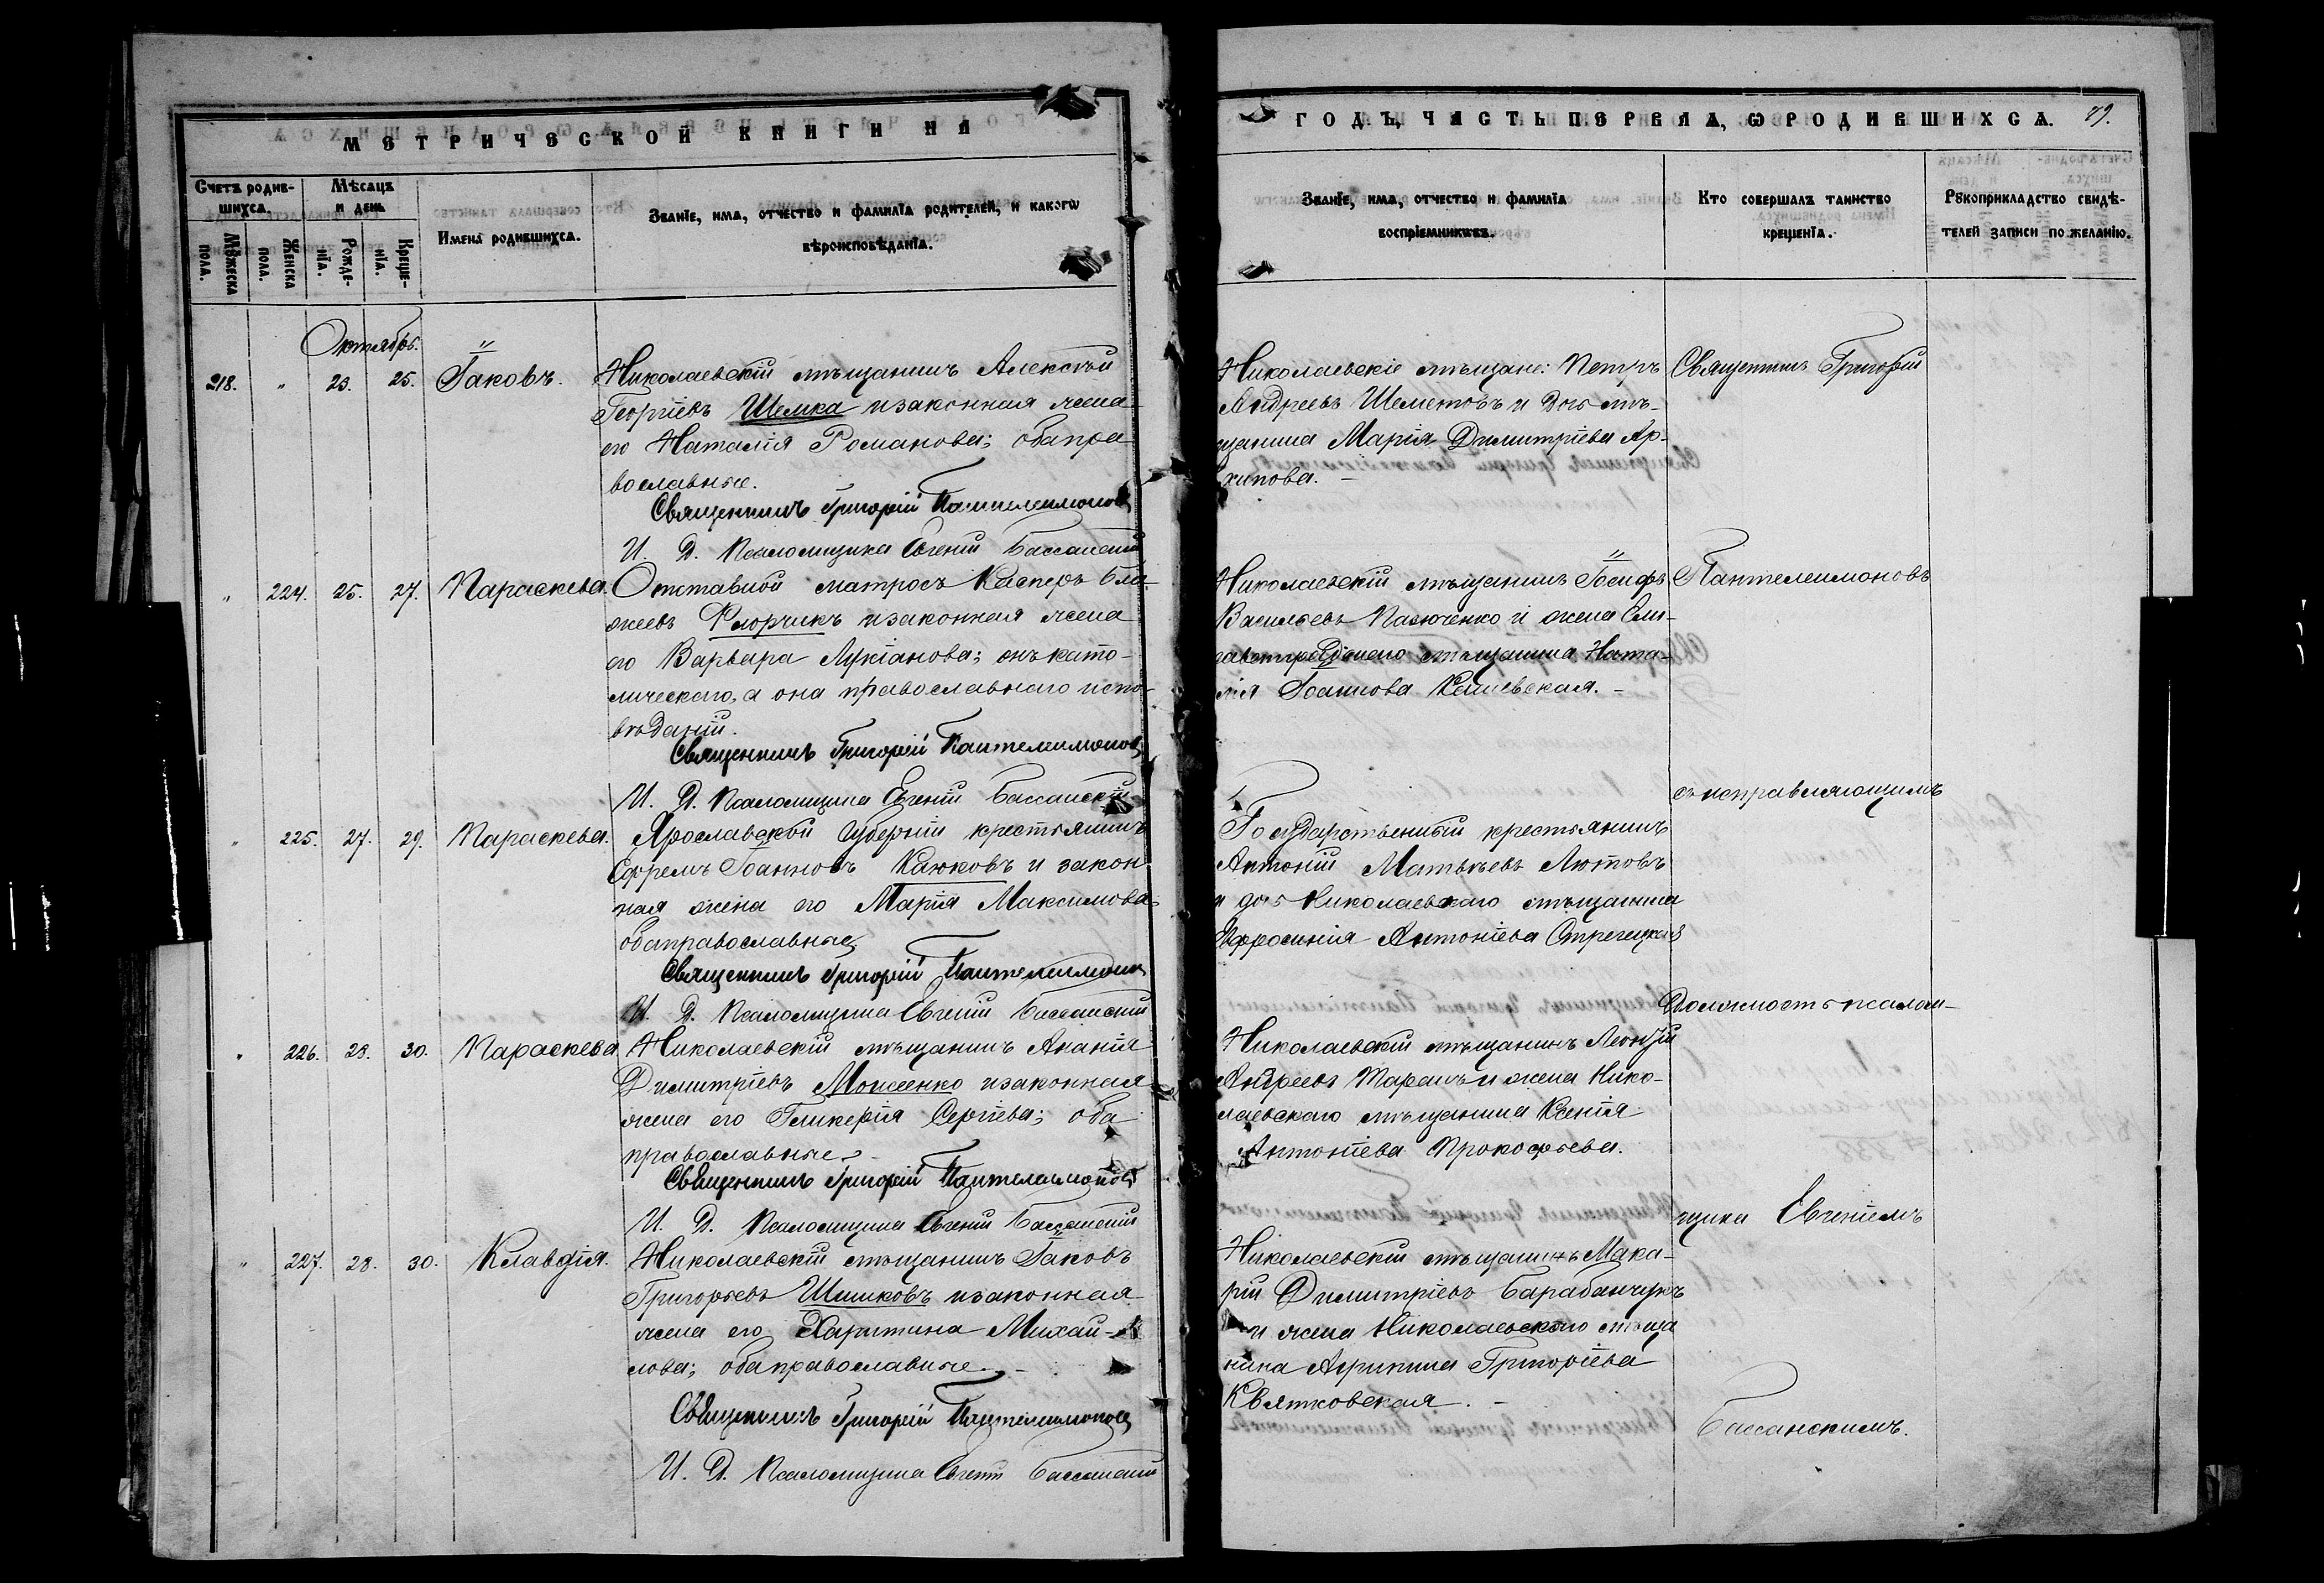 МЕТРИЧЕСКОЙ КНИГИ НА
Счетъ родив-
шихся.
Мѣсяцъ
и день
Мужеска
пола.
Женска
пола.
Рожде-
нїя.
Креще-
нїя.
Имена родившихся.
Званїе, имя, отчество и фамилїя родителей, и какогѡ
вѣроисповѣданїя.
Октябрь.
218. " 23. 25. Іаковъ. Николаевскій мѣщанинъ Алексѣй
Георгіевъ Шемка и законная жена
его Наталія Романова; оба пра
вославные.
Священникъ Григорій Пантелеимоновъ
И. Д. Псаломщика Евгеній Бассанскій
" 224. 25. 27. Параскева. Отставной матросъ Касперъ Бла
жеевъ Флорчикъ и законная жена
его Варвара Лукіанова; онъ като-
лическаго, а она православнаго испо-
вѣданій.
Священникъ Григорій Пантелеимоновъ
И. Д. Псаломщика Евгеній Бассанскій
" 225. 27. 29. Параскева. Ярославской губерніи крестьянинъ
Ефремъ Іоанновъ Каюковъ и закон
ная жена его Марія Максимова
оба православные,
Священникъ Григорій Пантелеимоновъ
И. Д. Псаломщика Евгеній Бассанскій
" 226. 28. 30. Параскева Николаевскій мѣщанинъ Ананія
Димитріевъ Моисеенко и законная
жена его Гликерія Сергіева; оба
православные. -
Священникъ Григорій Пантелеимоновъ
И. Д. Псаломщика Евгеній Бассанскій
" 227. 28. 30. Клавдія. Николаевскій мѣщанинъ Іаковъ
Григорьевъ Шишковъ и законная
жена его Харитина Михай-
лова; оба православные. -
Священникъ Григорій Пантелеимоновъ
И. Д. Псаломщика Евгеній Бассанскій
ГОДЪ, ЧАСТЬ ПЕРВАЯ, Ѡ РОДИВШИХСЯ. 79.
Званїе, имя, отчество и фамилїя
воспрїемниковъ.
Кто совершалъ таинство
крещенїя.
Рукоприкладство свидѣ-
телей записи по желанію.
Николаевскіе мѣщане: Петръ
Андреевъ Шеметовъ и дочь мѣ-
щанина Марія Димитріева Ар-
хипова. -
Николаевскій мѣщанинъ Іосифъ
Васильевъ Пазюченко и жена Ели-
саветградскаго мѣщанина Ната-
лія Іоаннова
Государственный крестьянинъ
Антоній Матвѣевъ Лютовъ
и дочь Николаевскаго мѣщанина
Евфросинія Антоніева
Николаевскій мѣщанинъ Леонтій
Андреевъ Таранъ и жена Нико-
лаевскаго мѣщанина Ксенія
Антоніева Прокофьева.
Николаевскій мѣщанинъ Мака-
рій Димитріевъ Барабанчукъ
и жена Николаевскаго мѣща
нина Агрипина Григоріева
Квятковская. -
Священникъ Григорій
Пантелеимоновъ
съ исправляющимъ
Должность псалом-
щика Евгеніемъ
Бассанскимъ.